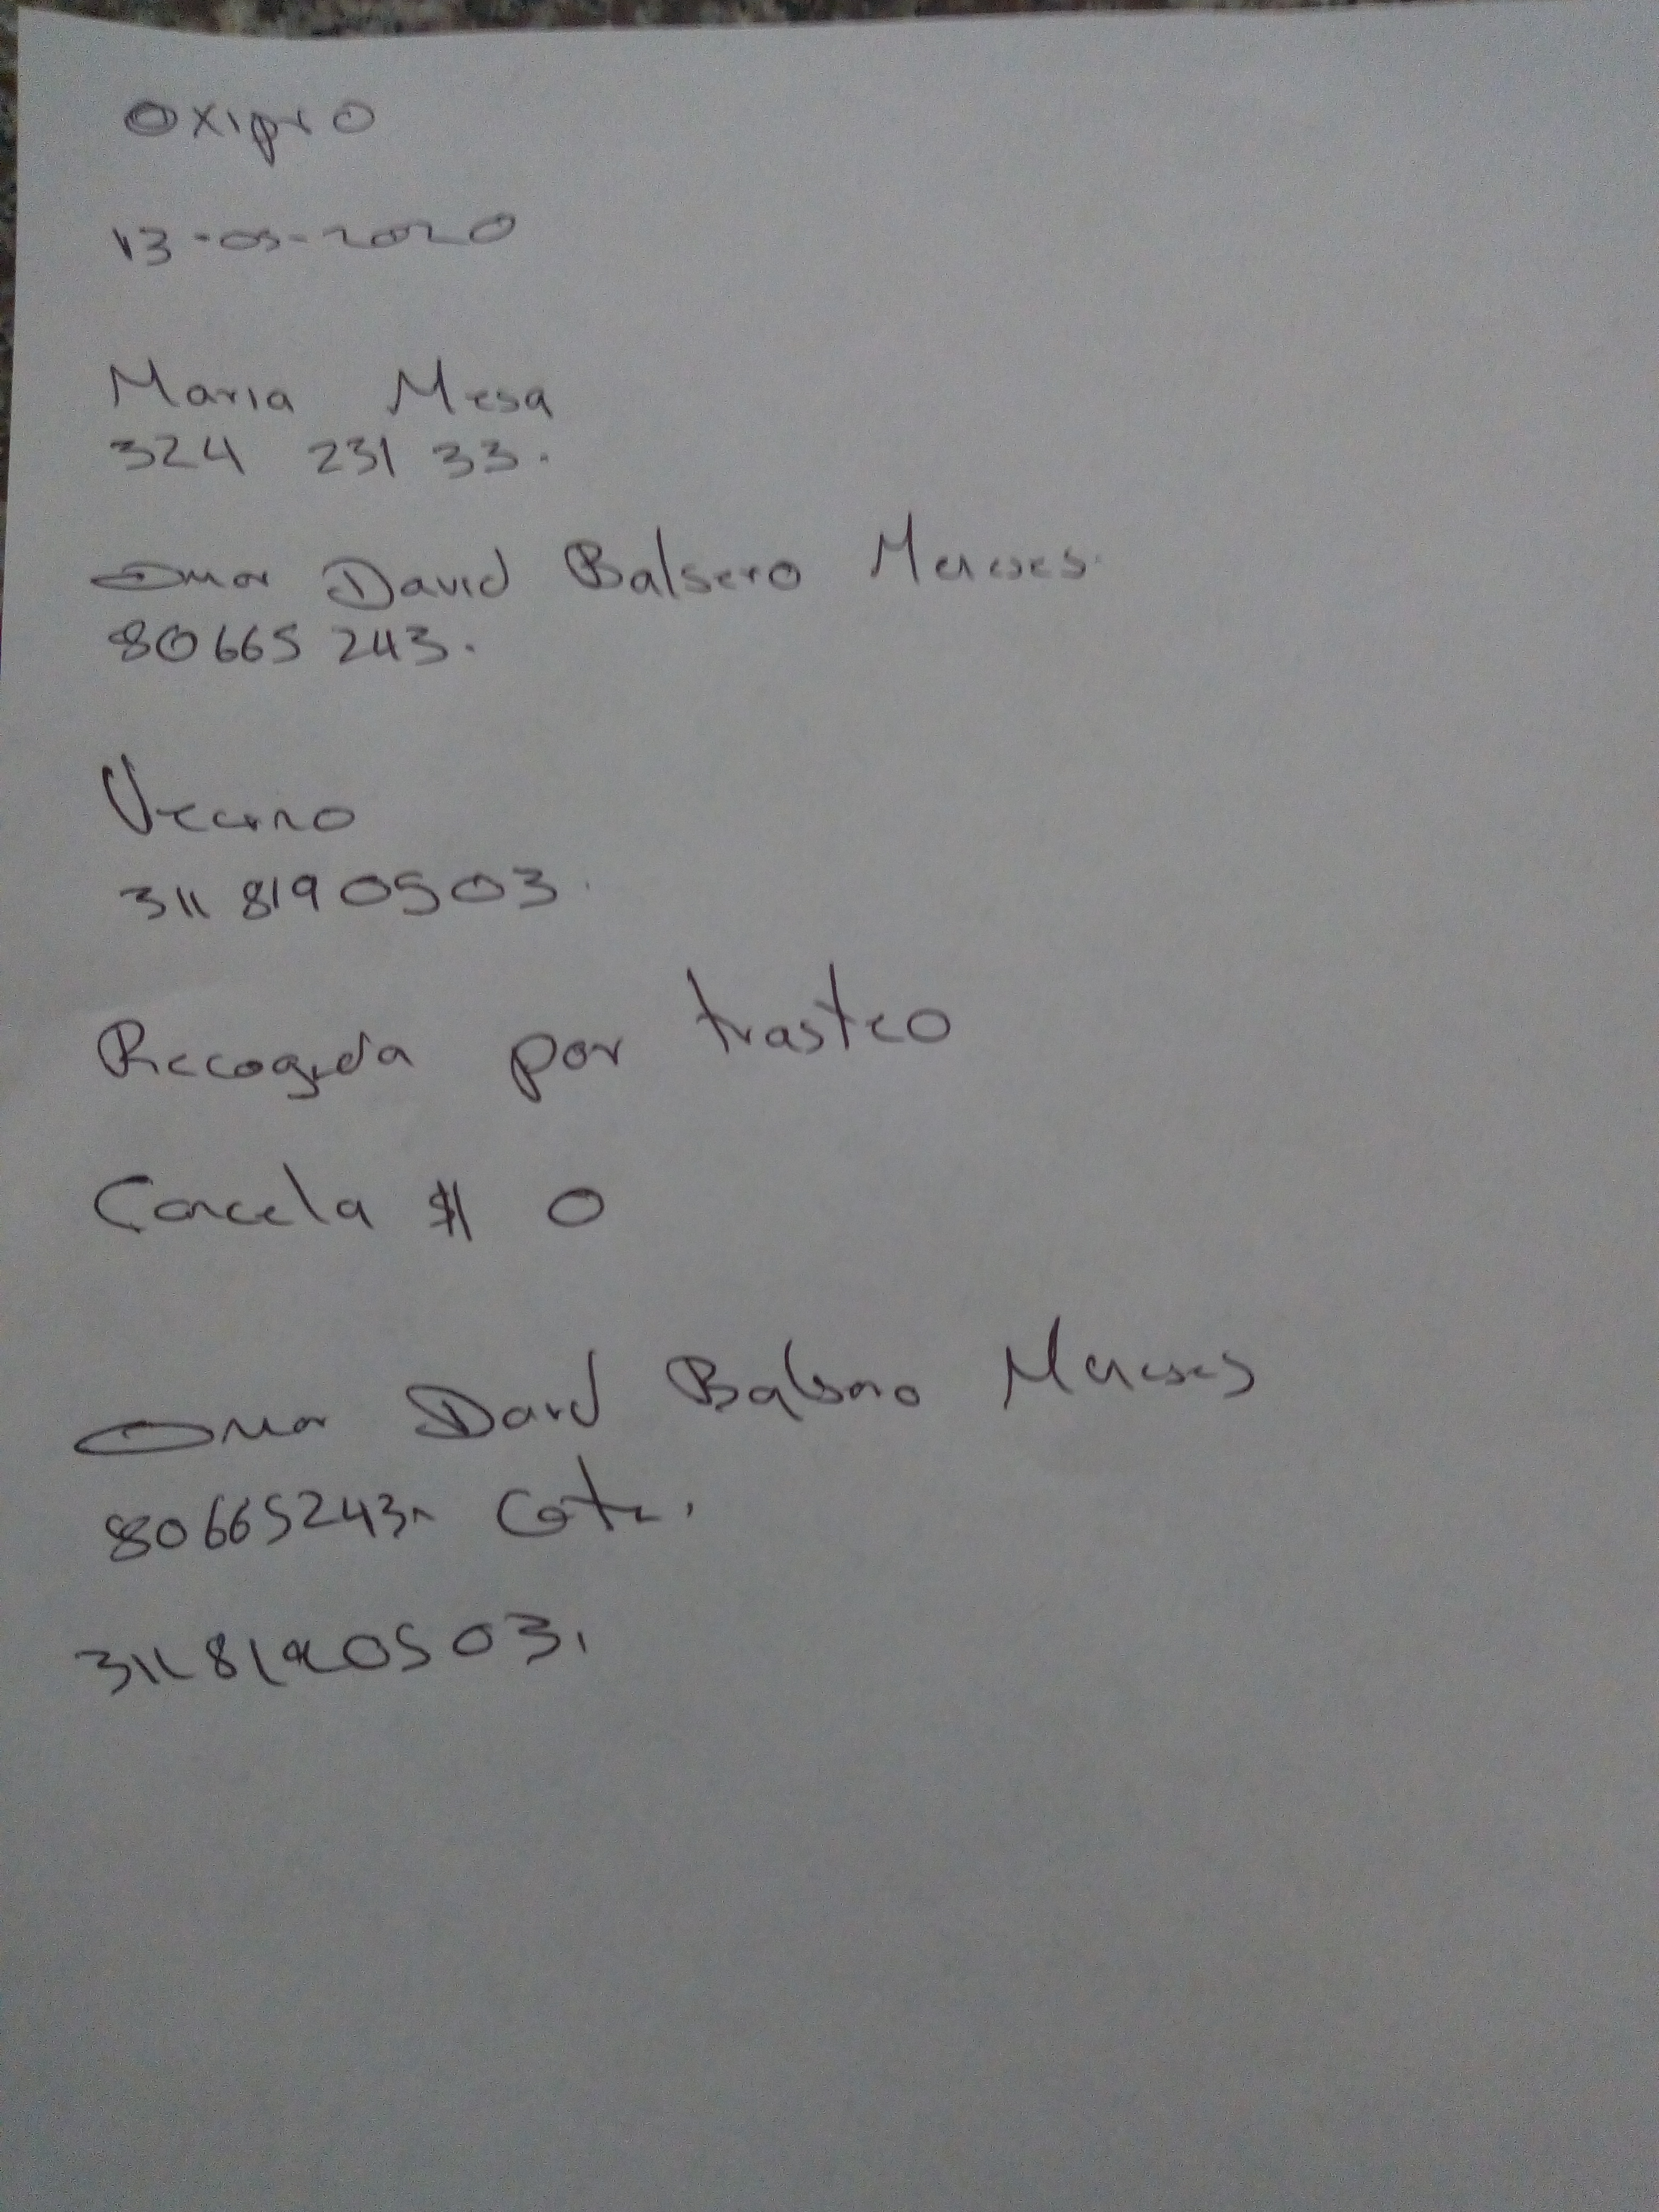 Oxipro
13-05-2020
Maria Mesa
324 231 33.
Omar David Balsero
80665 243.
Vecino
311 8190503.
Recogida por trasteo
Cancela $ 0
Omar David Balsero
80665243. Cota.
3118190503.